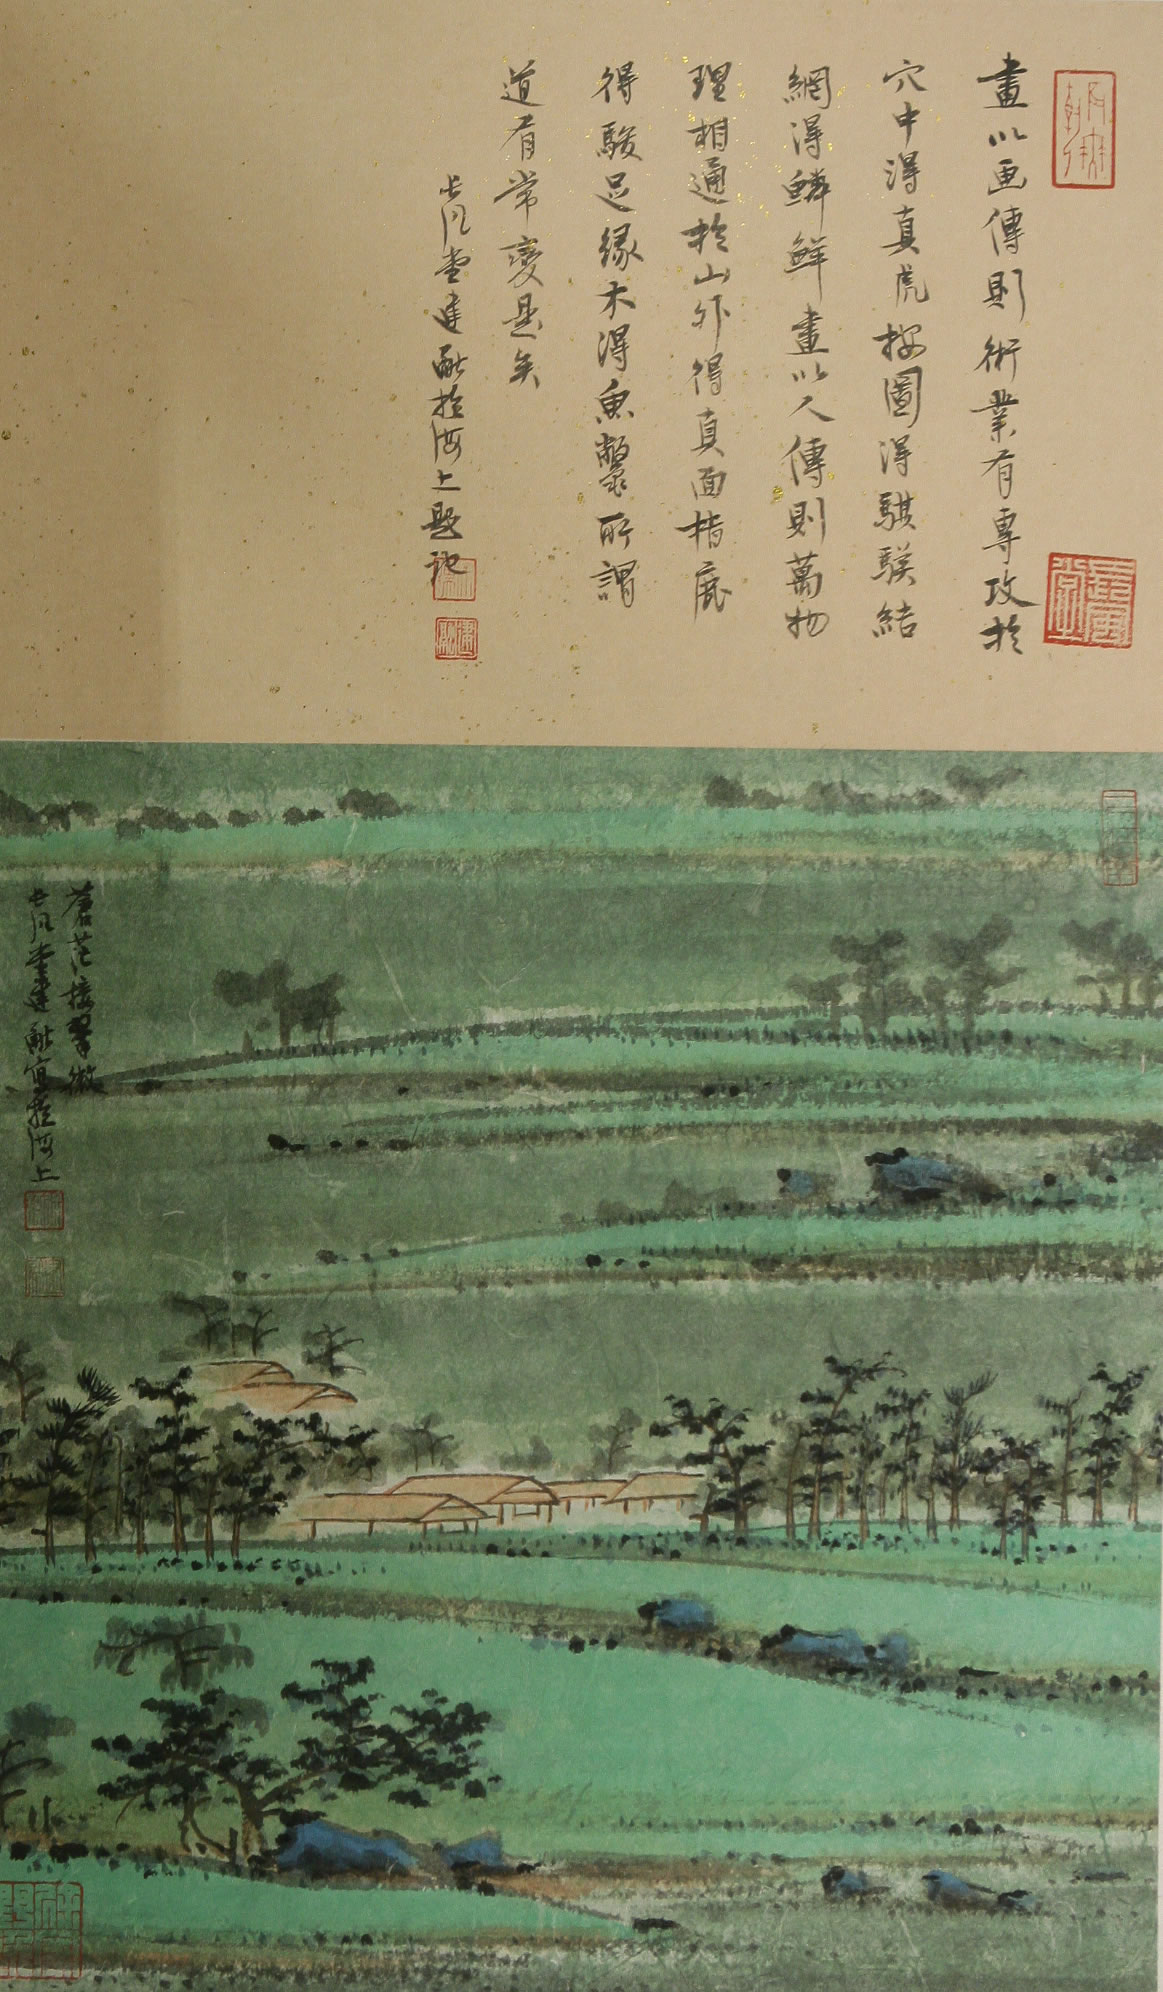 畫以画傳則術業有專攻於
穴中得真虎按圖得騏驥結
網得鱗鮮畫以人傳則萬物
理相通於山外得真面指鹿
得駿足緣木得魚鱉所謂
道有常變是矣
長風堂建融於海上題記
長風堂
建融
蒼茫接翠微
長風堂建融寫於海上